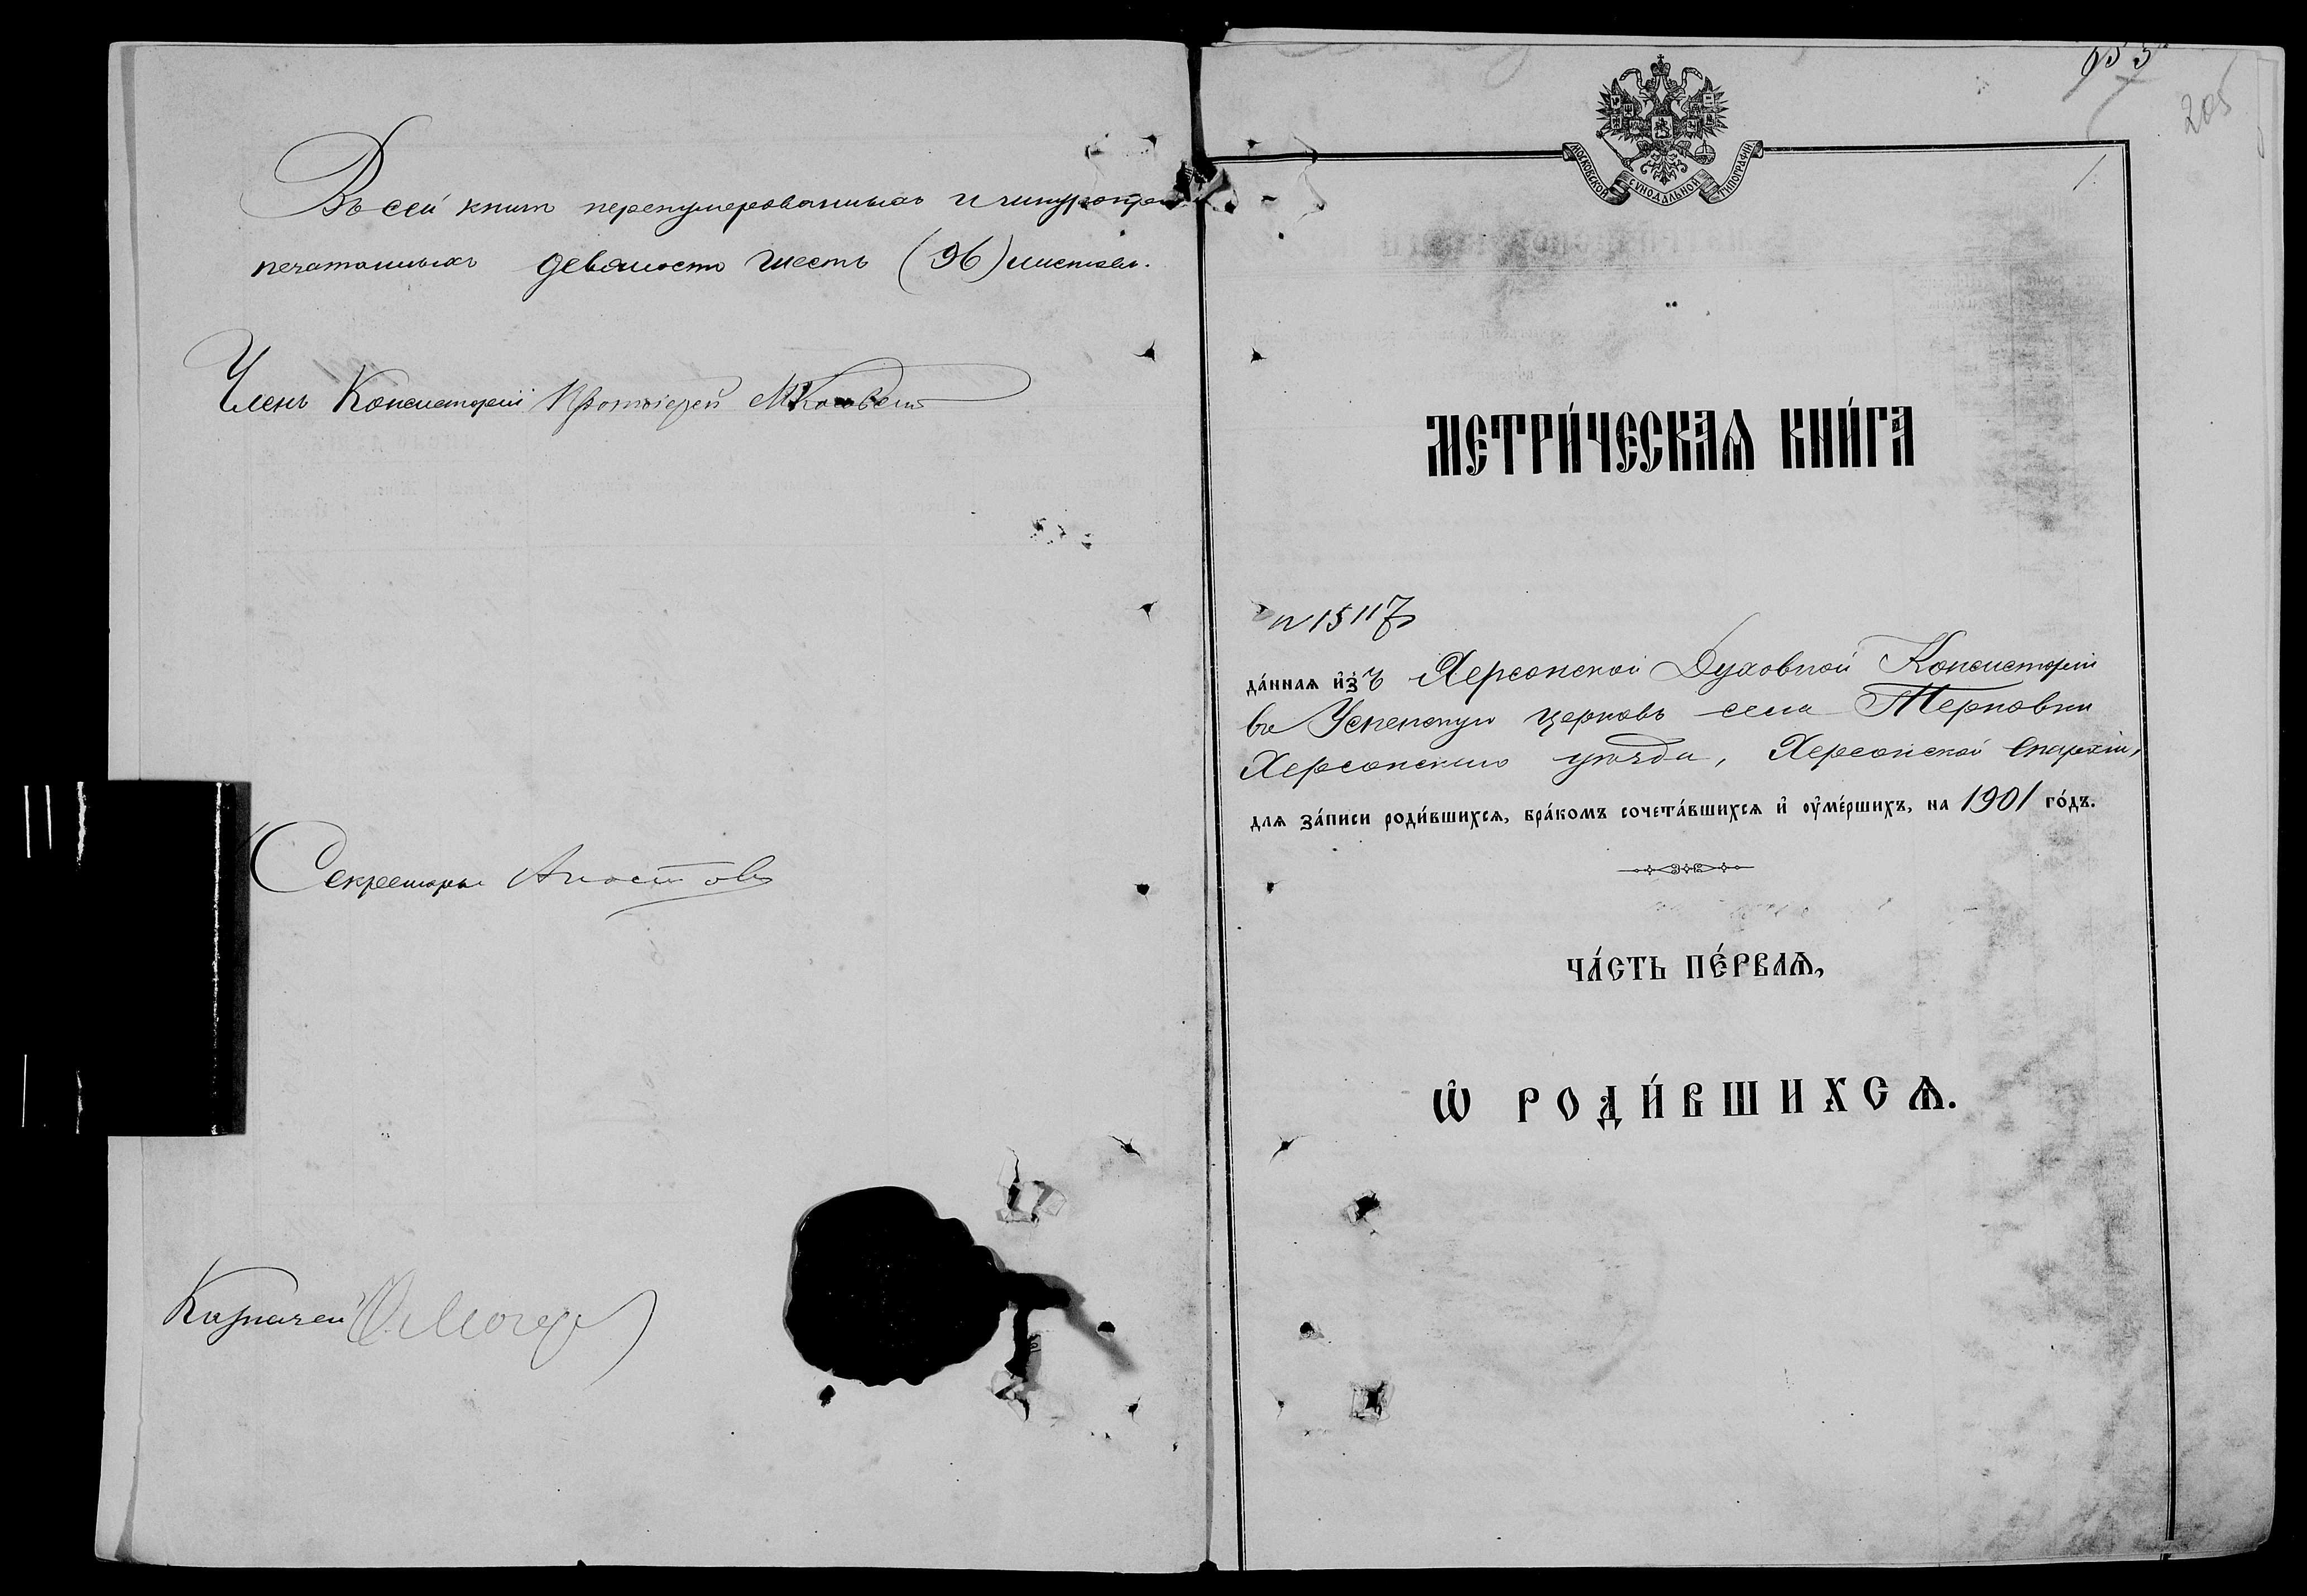 Въ сей книгѣ перенумерованныхъ и шнуропри
печатанныхъ девяносто шесть (96) листовъ.
Членъ Консисторіи Протоіерей
Секретарь
Казначей
205
1.
МОСКОВСКОЙ СѴНОДАЛЬНОЙ ТИПОГРАФІИ
МЕТРИ́ЧЕСКАѦ КНИ́ГА
№ 15117
да́ннаѧ и҆зъ Херсонской Духовной Консисторіи
въ Успенскую церковь села Терновки
Херсонскаго уѣзда, Херсонской Епархіи,
длѧ за́писи роди́вшихсѧ, бра́комъ сочета́вшихсѧ и҆ ᲂу҆ме́ршихъ, на 1901 го́дъ.
ЧА́СТЬ ПЕ́РВАѦ,
Ѽ РОДИ́ВШИХСѦ.